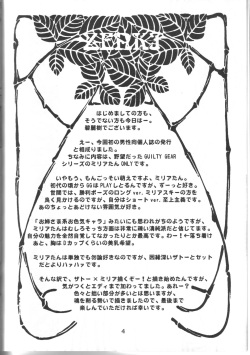 ZERK3
はじめましての方も、
そうでない方も今日はー。
碧麗樹でございます。
えー、今回初の男性向個人誌の発行
と相成りました。
ちなみに内容は、野望だった GUILTY GEAR
シリーズのミリアたん ONLY です。
いやもう、もんごっそい萌えですよ、ミリアたん。
初代の頃から GG は PLAY しとるんですが、ずーっと好き。
世間では、勝利ポーズのロング ver. ミリアスキーの方を
良く見かけるのですが、自分はショート ver. 至上主義です。
あのちょっとあどけない雰囲気が好き。
「お姉さま系お色気キャラ」みたいにも思われがちのようですが、
ミリアたんはむしろそっち方面は非常に疎い清純派だと信じてます。
自分の魅力を全然自覚してなかったりとか最高です。わーし!←落ち着け
あと、胸はDカップくらいの美乳希望。
ミリアたんは単体でも勿論好きなのですが、因縁深いザトーとセット
だとよりハァハァです。
そんな訳で、ザトー×ミリア描くぞー!と描き始めたんですが、
気がつくとエディまで加わってました。あれー?
色々と拙い部分が多いとは思いますが、
魂を削る勢いで描きましたので、最後まで
楽しんでいただければ幸いです。
4